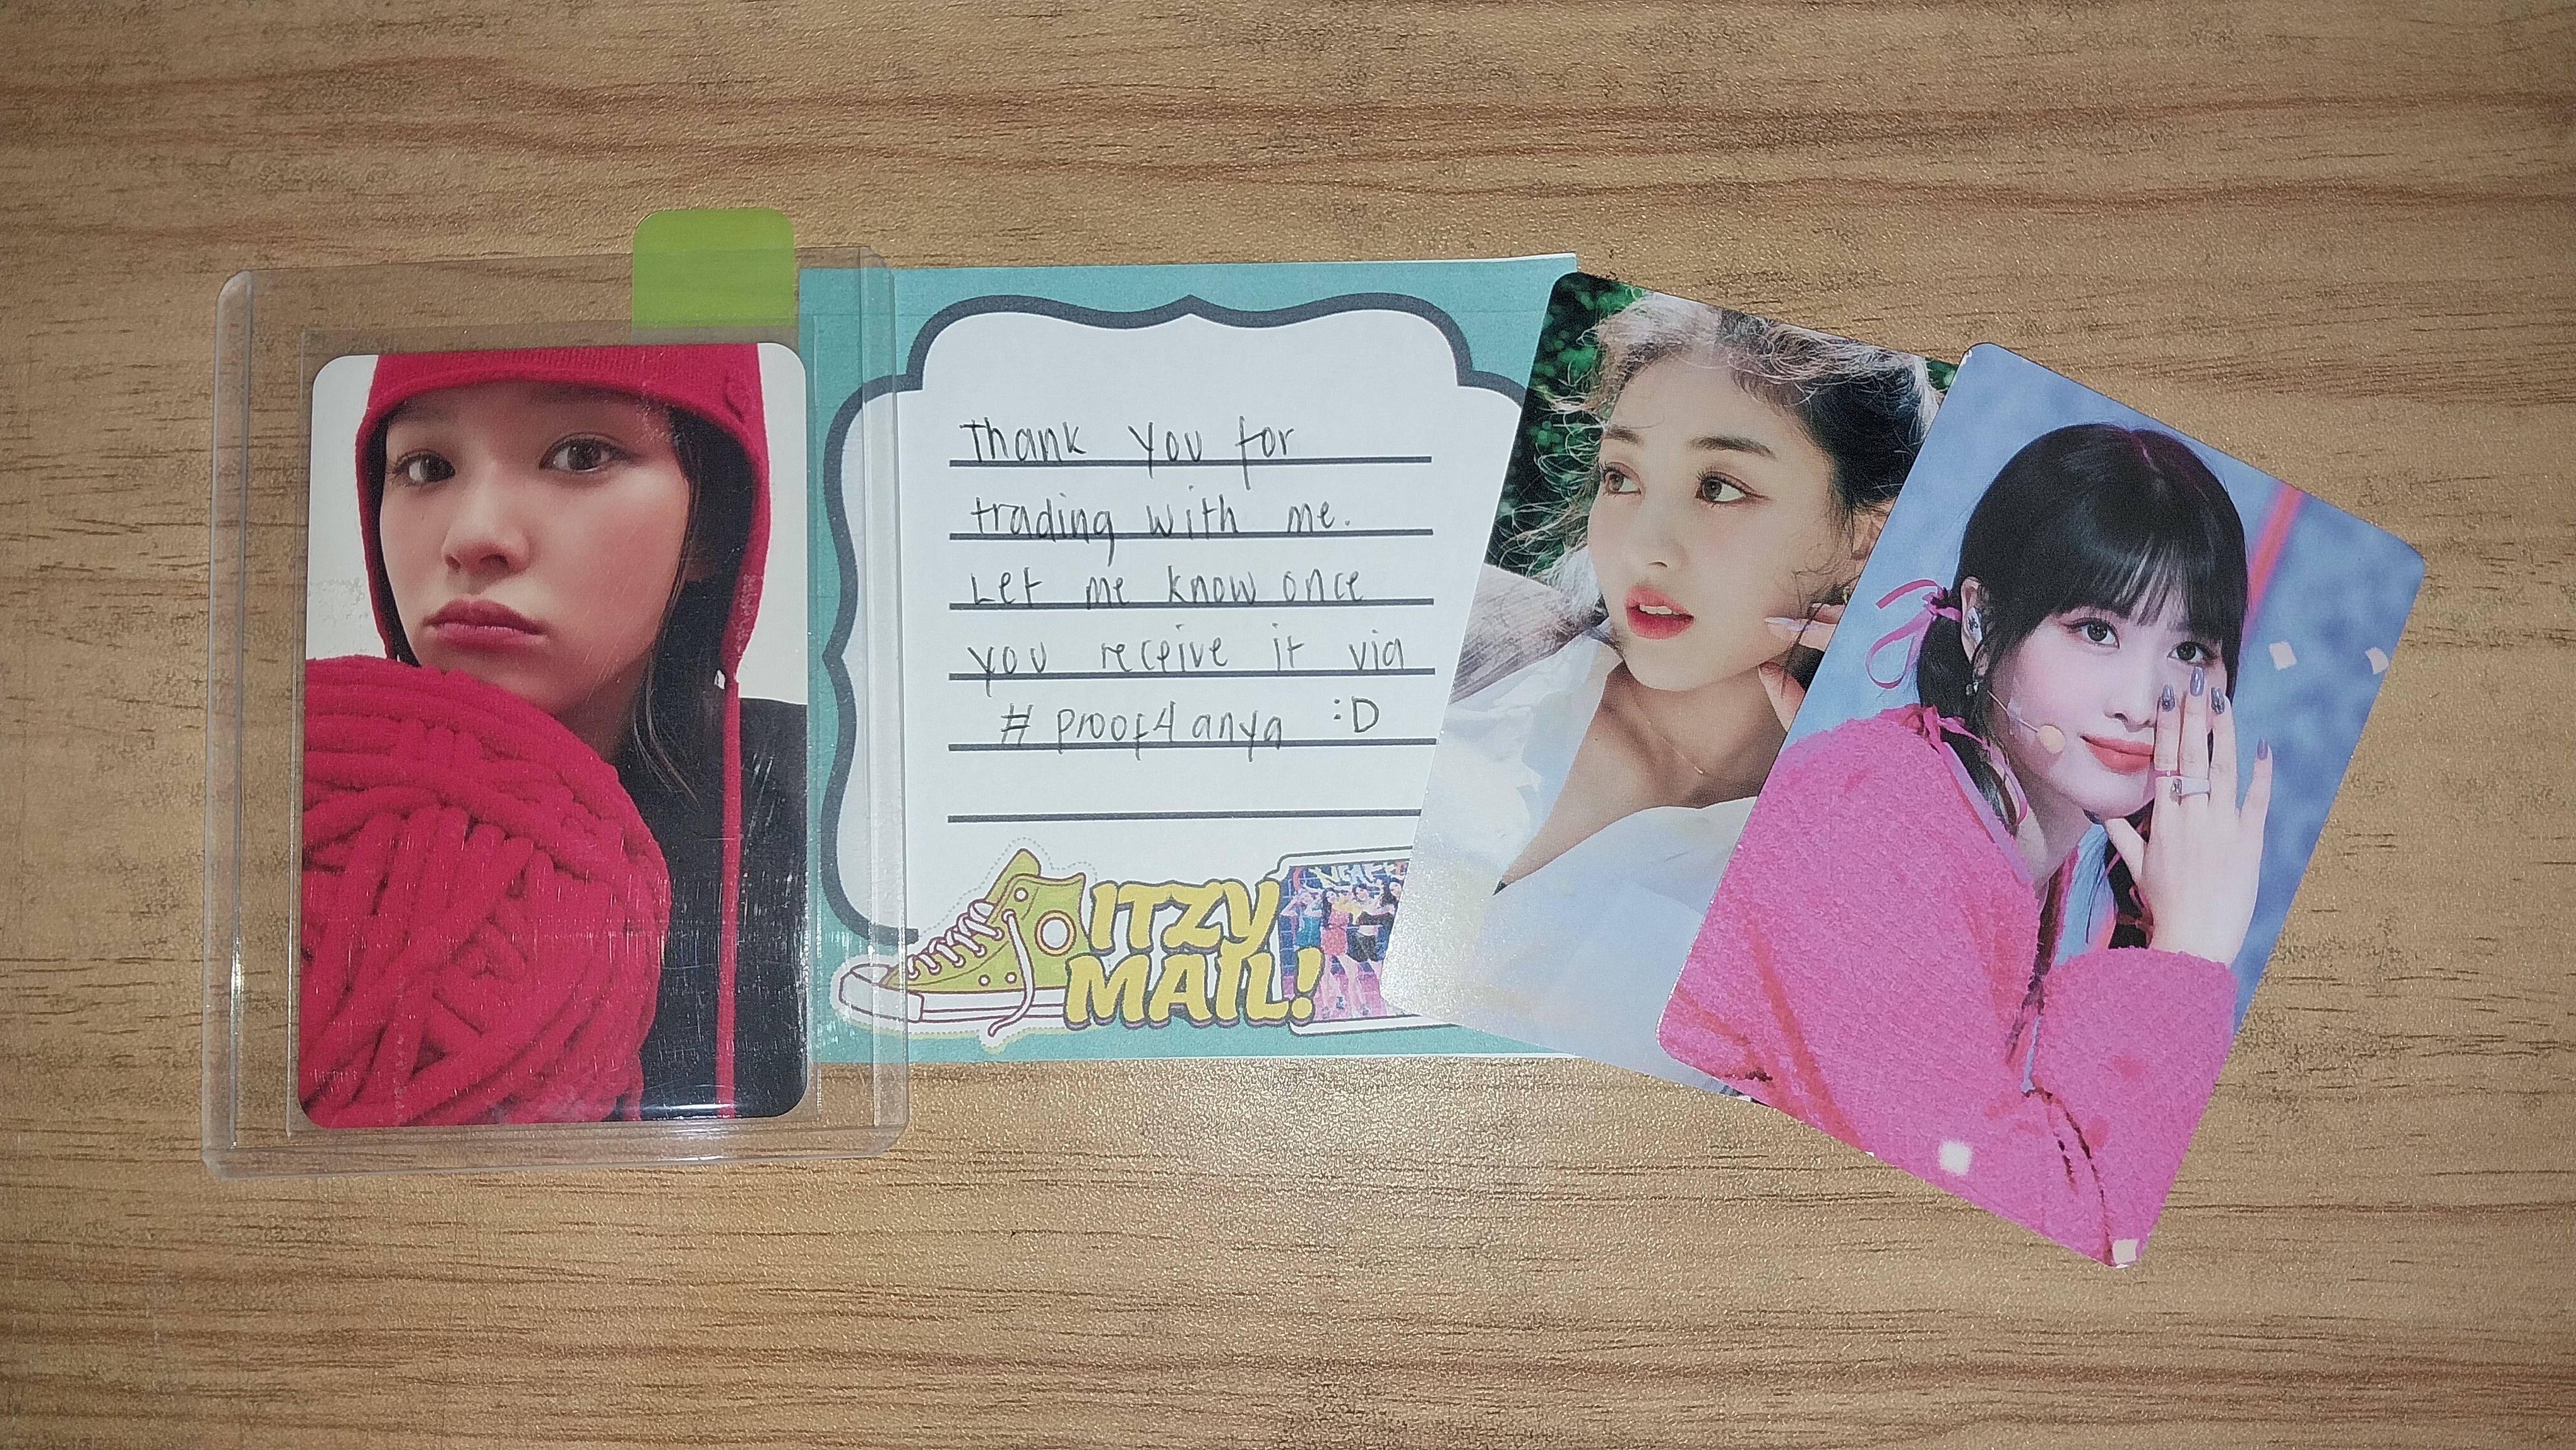 Thank you for
trading with me.
Let me know once
you receive it via
# proof4anya :D
ITZY
MAIL!